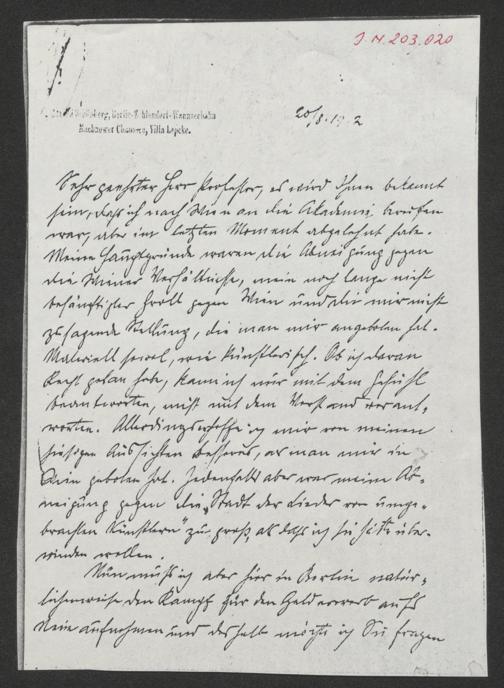 J.N. 203.020
Berlin-Zehlendorf-Wannseebahn
Machnower Chaussee, Villa Lepcke.
20/8.1912
Sehr geehrter Herr Professor, es wird Ihnen bekannt
sein, daß ich nach Wien an die Akademie berufen
war, aber im letzten Moment abgelehnt habe.
Meine Hauptgründe waren die Abneigung gegen
die Wiener Verhältnisse, mein noch lange nicht
besänftigter Groll gegen Wien und die mir nicht
zusagende Stellung, die man mir angeboten hat.
Materiell sowol, wie künstlerisch. Ob ich daran
Recht getan habe, kann ich nur mit dem Gefühl
beantworten, nicht mit dem Verstand verant-
worten. Allerdings hoffe ich mir von meinen
hiesigen Aussichten besseres, als man mir in
Wien geboten hat. Jedenfalls aber war meine Ab-
neigung gegen die „Stadt der Lieder von umge-
brachten Künstlern“ zu groß, als daß ich sie hätte über-
winden wollen.
Nun muß ich aber hier in Berlin natür-
licherweise den Kampf für den Gelderwerb aufs
Neue aufnehmen und deshalb möchte ich Sie fragen